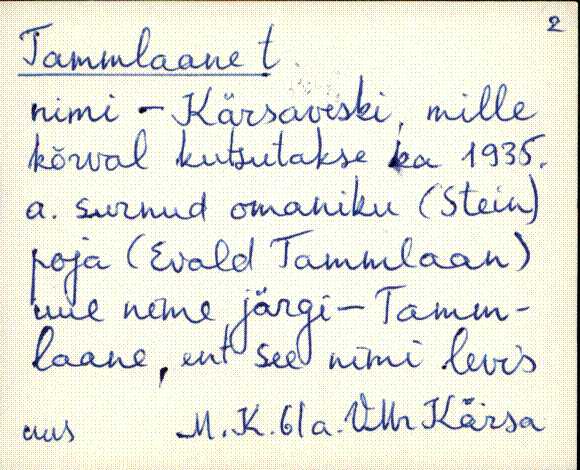 2
Tammlaane t
nimi - Kärsaveski, mille
kõrval kutsutakse ka 1935.
a. surnud omaniku (Stein)
poja (Evald Tammlaan)
uue nime järgi - Tamm-
laane, ent see nimi levis
uus M.K. 61 a. VMr Kärsa